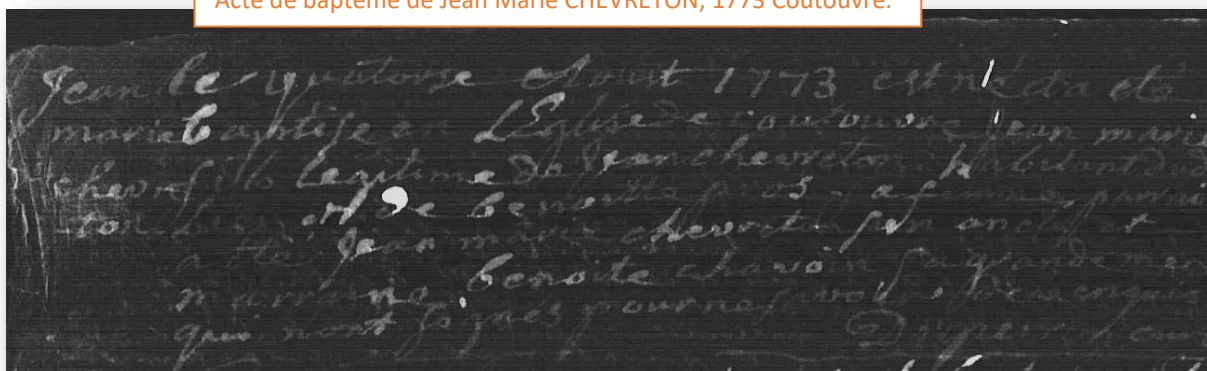 Acte de baptême de Jean Marie CHEVRETON, 1773 Coutouvre.
Jean le quatorse Aoust 1773 est né et a eté
marie baptise en L'Eglise de coutouvre jean marie
chevre fils Legitime De Jean chevreton habitant dud
ton lieu et de benoitte gros sa femme, parrain
a eté Jean marie chevreton son oncle et
marraine benoite chavoin sa grande mere
qui n'ont signés pour ne savoir de ce enquis